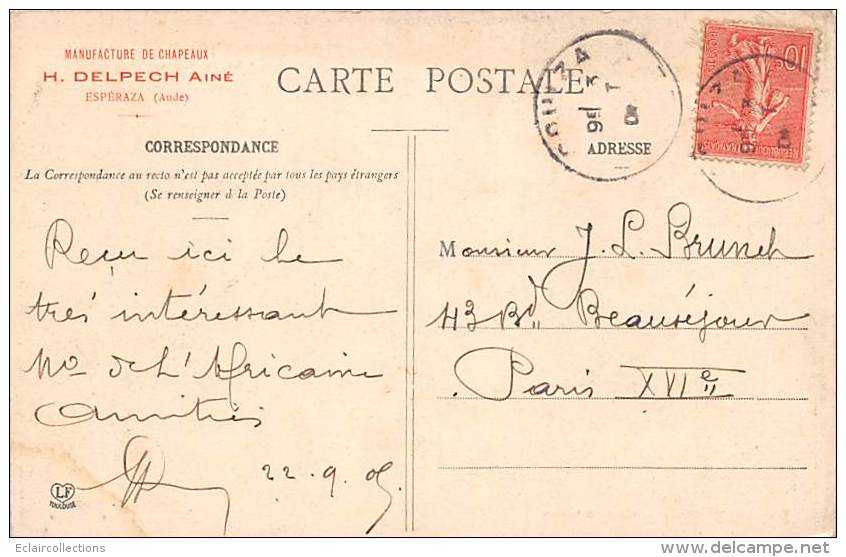 MANUFACTURE DE CHAPEAUX
H. DELPECH AINÉ
ESPÉRAZA (Aude)
CARTE POSTALE
CORRESPONDANCE
La Correspondance au recto n'est pas acceptée par tous les pays étrangers
(Se renseigner à la Poste)
ADRESSE
COUIZA
10
REPUBLIQUE FRANÇAISE
Reçu ici le
très intéressant
No de L'Africaine
Amitiés
22.9.05
LF
TOULOUSE
Monsieur J. L. Brunet
43 Bd Beauséjour
Paris XVIe
Eclaircollections
www.delcampe.net